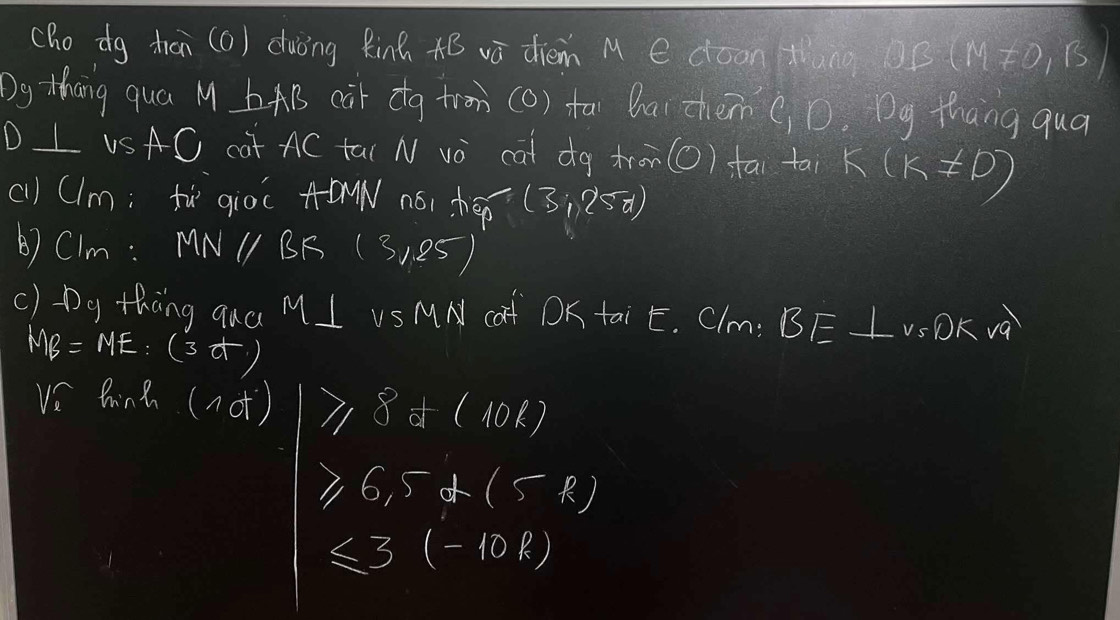 Cho đg tròn (O) đường kính AB và điểm M ∈ đoạn thẳng OB (M ≠ O, B)
Đg thẳng qua M ⊥ AB cắt đg tròn (O) tại hai điểm C, D. Đg thẳng qua
D ⊥ vs AC cắt AC tại N và cắt đg tròn (O) tại tại K (K ≠ D)
a) C/m: tứ giác ADMN nội tiếp (3,25đ)
b) C/m: MN // BK (3,25)
c) Đg thẳng qua M ⊥ vs MN cắt DK tại E. C/m: BE ⊥ vs DK và
MB = ME: (3 đ)
Vẽ hình (1đ)
≥ 8 đ (10k)
≥ 6,5 đ (5k)
≤ 3 (-10k)